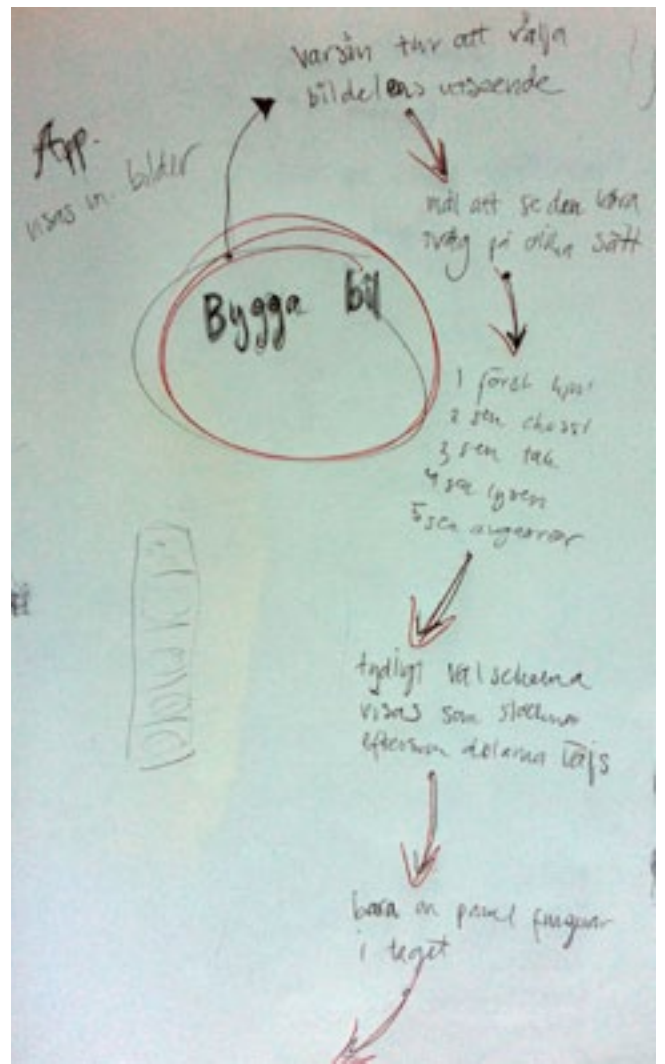 varsin tur att välja
bildelens utseende
App.
visas m. bilder
mål att se den köra
iväg på olika sätt
Bygga bil
1 först hjul
2 sen chassi
3 sen tak
4 sen lysen
5 sen avgasrör
tydligt valschema
visas som slocknar
eftersom delarna väljs
bara en panel fungerar
i taget